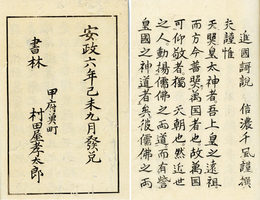 信濃千風謹撰
夫謹惟
天照皇太神者吾上皇之遠祖
而方今普照萬國者也故萬國
可仰敬者獨 天朝也然近世
之人動揚儒佛之両道而有訾
皇國之神道者矣彼儒佛之両
安政六年己未九月發兌
甲府町
書林 村田屋孝太郎